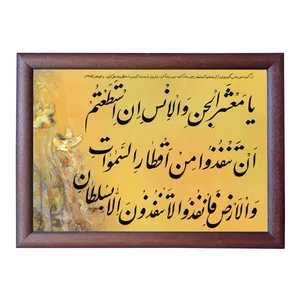 یا معشر الجن والانس ان استطعتم
ان تنفذوا من اقطار السموات
والارض فانفذوا لا تنفذون الا بسلطان